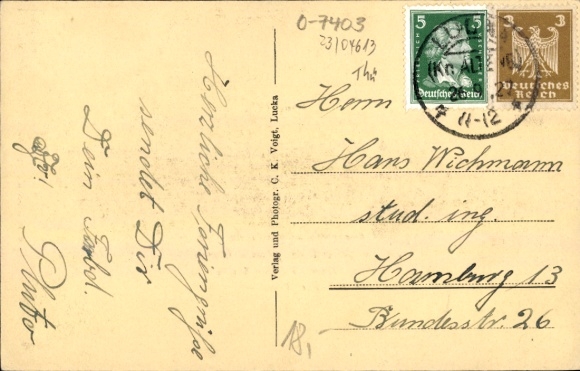 O-7403
23/04613
Thü
Herzliche Feriengrüße
sendet Dir
Dein Farbbr.
Pluto
Verlag und Photogr. C. K. Voigt, Lucka
18,-
5 5
Deutsches Reich
3 3
Deutsches
Reich
LUCKA
11-12
Herrn
Hans Wichmann
stud. ing.
Hamburg 13
Bundesstr. 26